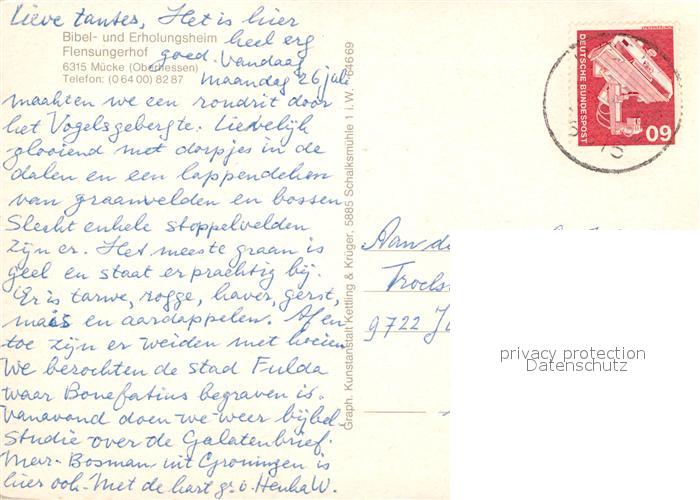 Lieve tantes, Het is hier
Bibel- und Erholungsheim
Flensungerhof
heel erg
goed. Vandaag
6315 Mücke (Oberhessen)
Telefon: (0 64 00) 82 87
maandag 26 juli
maakten we een rondrit door
het Vogelsgebergte. Lieflijk
glooiend met dorpjes in de
dalen en een lappendeken
van graanvelden en bossen
Slecht enkele stoppelvelden
zijn er. Het meeste graan is
geel en staat er prachtig bij.
Er is tarwe, rogge, haver, gerst,
maïs en aardappelen. Af en
toe zijn er weiden met koeien
We bezochten de stad Fulda
waar Bonefatius begraven is.
Vanavond doen we weer bijbel
studie over de Galatenbrief.
Mevr. Bosman uit Groningen is
hier ook. Met de hart. gr. v. Henk a W.
Graph. Kunstanstalt Kettling & Krüger, 5885 Schalksmühle 1 i. W. 64669
DEUTSCHE BUNDESPOST
60
Aan de
Troels
9722 J
privacy protection
Datenschutz